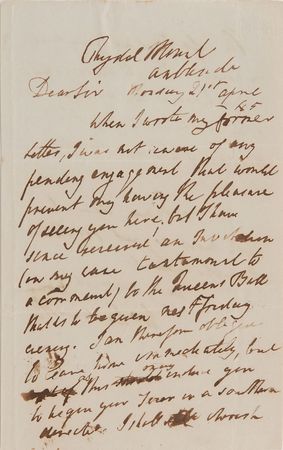 Rydal Mount
Ambleside
Dear Sir Monday 21st April
-45
When I wrote my former
letter, I was not aware of any
pending engagement that would
prevent my having the pleasure
of seeing you here, but I have
since received an Invitation
(in my case tantamount to
a command) to the Queens Ball
that is to be given next friday
evening. I am therefore obliged
to leave home immediately, but
this may induce you
to begin your Tour in a southern
direction I shall